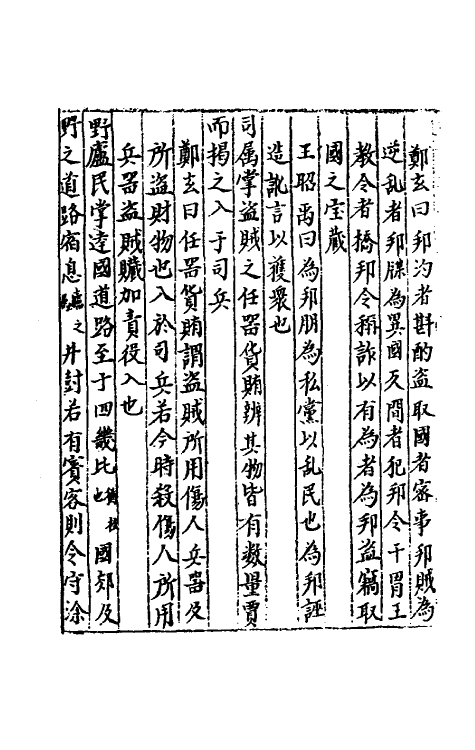 鄭玄曰邦汋者斟酌盗取國者宻事邦賊為
逆乱者邦牒為異國反間者犯邦令干冒王
教令者撟邦令稱詐以有為者為邦盗竊取
國之宝藏
王昭禹曰為邦朋為私黨以乱民也為邦誣
造訛言以獲衆也
司属掌盗賊之任器貨賄辨其物皆有数量賈
而揭之入于司兵
鄭玄曰任器貨賄謂盗賊所用傷人兵器及
所盗財物也入於司兵若今時殺傷人所用
兵器盗賊贜加責役入也
野廬民掌達國道路至于四畿比也國郊及
野之道路宿息之井封若有賓客則令守涂